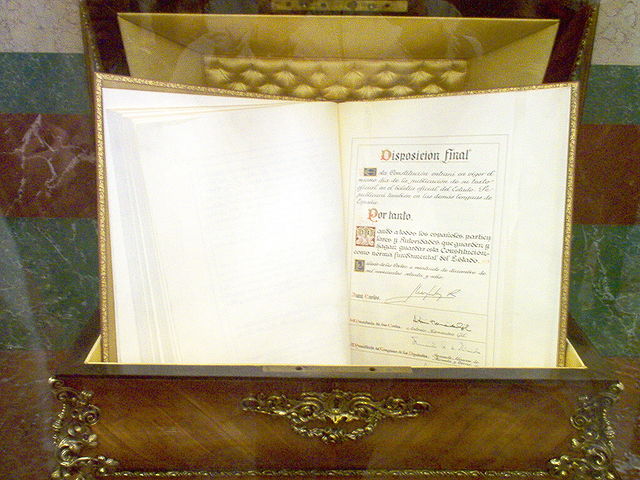 Disposicion final
Esta Constitución entrará en vigor el
mismo día de la publicación de su texto
oficial en el boletín oficial del Estado. Se
publicará también en las demás lenguas de
España.
Por tanto.
Mando a todos los españoles, particu
lares y Autoridades que guarden y
hagan guardar esta Constitución
como norma fundamental del Estado.
Palacio de las Cortes, a veintisiete de diciembre de
mil novecientos setenta y ocho.
Juan Carlos.
El Presidente de las Cortes
Antonio Hernández Gil
El Presidente del Congreso de los Diputados